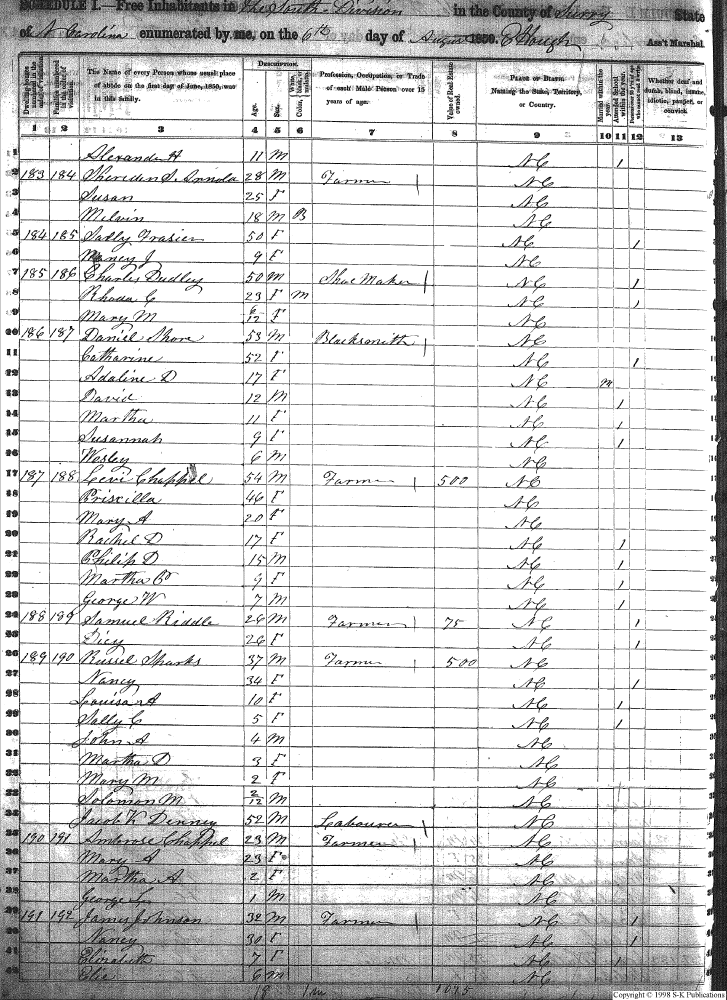 SCHEDULE I.—Free Inhabitants in The South Division in the County of Surry State
of N Carolina enumerated by me, on the 6th day of August 1850. Ass't Marshal
The Name of every Person whose usual place of abode on the first day of June, 1850, was in this family.
DESCRIPTION.
Age.
Sex.
Profession, Occupation, or Trade of each Male Person over 15 years of age.
Value of Real Estate owned.
PLACE OF BIRTH. Naming the State, Territory, or Country.
Married within the year.
Attended School within the year.
Whether deaf and dumb, blind, insane, idiotic, pauper, or convict.
1 2 3 4 5 6 7 8 9 10 11 12 13
1 Alexander H 11 M NC 1
2 183 184 28 M Farmer NC
3 Susan 25 F NC
4 Melvin 18 M B NC
5 184 185 Sally Frasier 50 F NC 1
6 Nancy J 9 F NC
7 185 186 Charles Dudley 50 M Shoe Maker NC 1
8 Rhoda C 23 F M NC 1
9 Mary M 6/12 F NC
10 186 187 Daniel Shore 53 M Blacksmith NC
11 Catharine 52 F NC 1
12 Adaline D 17 F NC
13 David 12 M NC 1
14 Martha 11 F NC 1
15 Susannah 9 F NC 1
16 Wesley 6 M NC
17 187 188 Levi Chappel 54 M Farmer 500 NC
18 Priscilla 46 F NC
19 Mary A 20 F NC
20 Rachel D 17 F NC 1
21 Philip D 15 M NC 1
22 Martha 9 F NC 1
23 George W 7 M NC 1
24 188 189 Samuel Riddle 26 M Farmer 75 NC 1
25 26 F NC 1
26 189 190 Russel Sparks 37 M Farmer 500 NC
27 Nancy 34 F NC 1
28 Louisa A 10 F NC 1
29 Sally C 5 F NC 1
30 John A 4 M NC
31 Martha D 3 F NC
32 Mary M 2 F NC
33 Solomon M 2/12 M NC
34 Jacob K Denney 52 M Labourer NC
35 190 191 Ambrose Chappel 23 M Farmer NC
36 Mary A 23 F NC
37 Martha A 2 F NC
38 George 1 M NC
39 191 192 James Johnson 32 M Farmer NC 1
40 Nancy 30 F NC 1
41 Elizabeth 7 F NC 1
42 6 M NC
18 1075
Copyright © 1998 S-K Publications